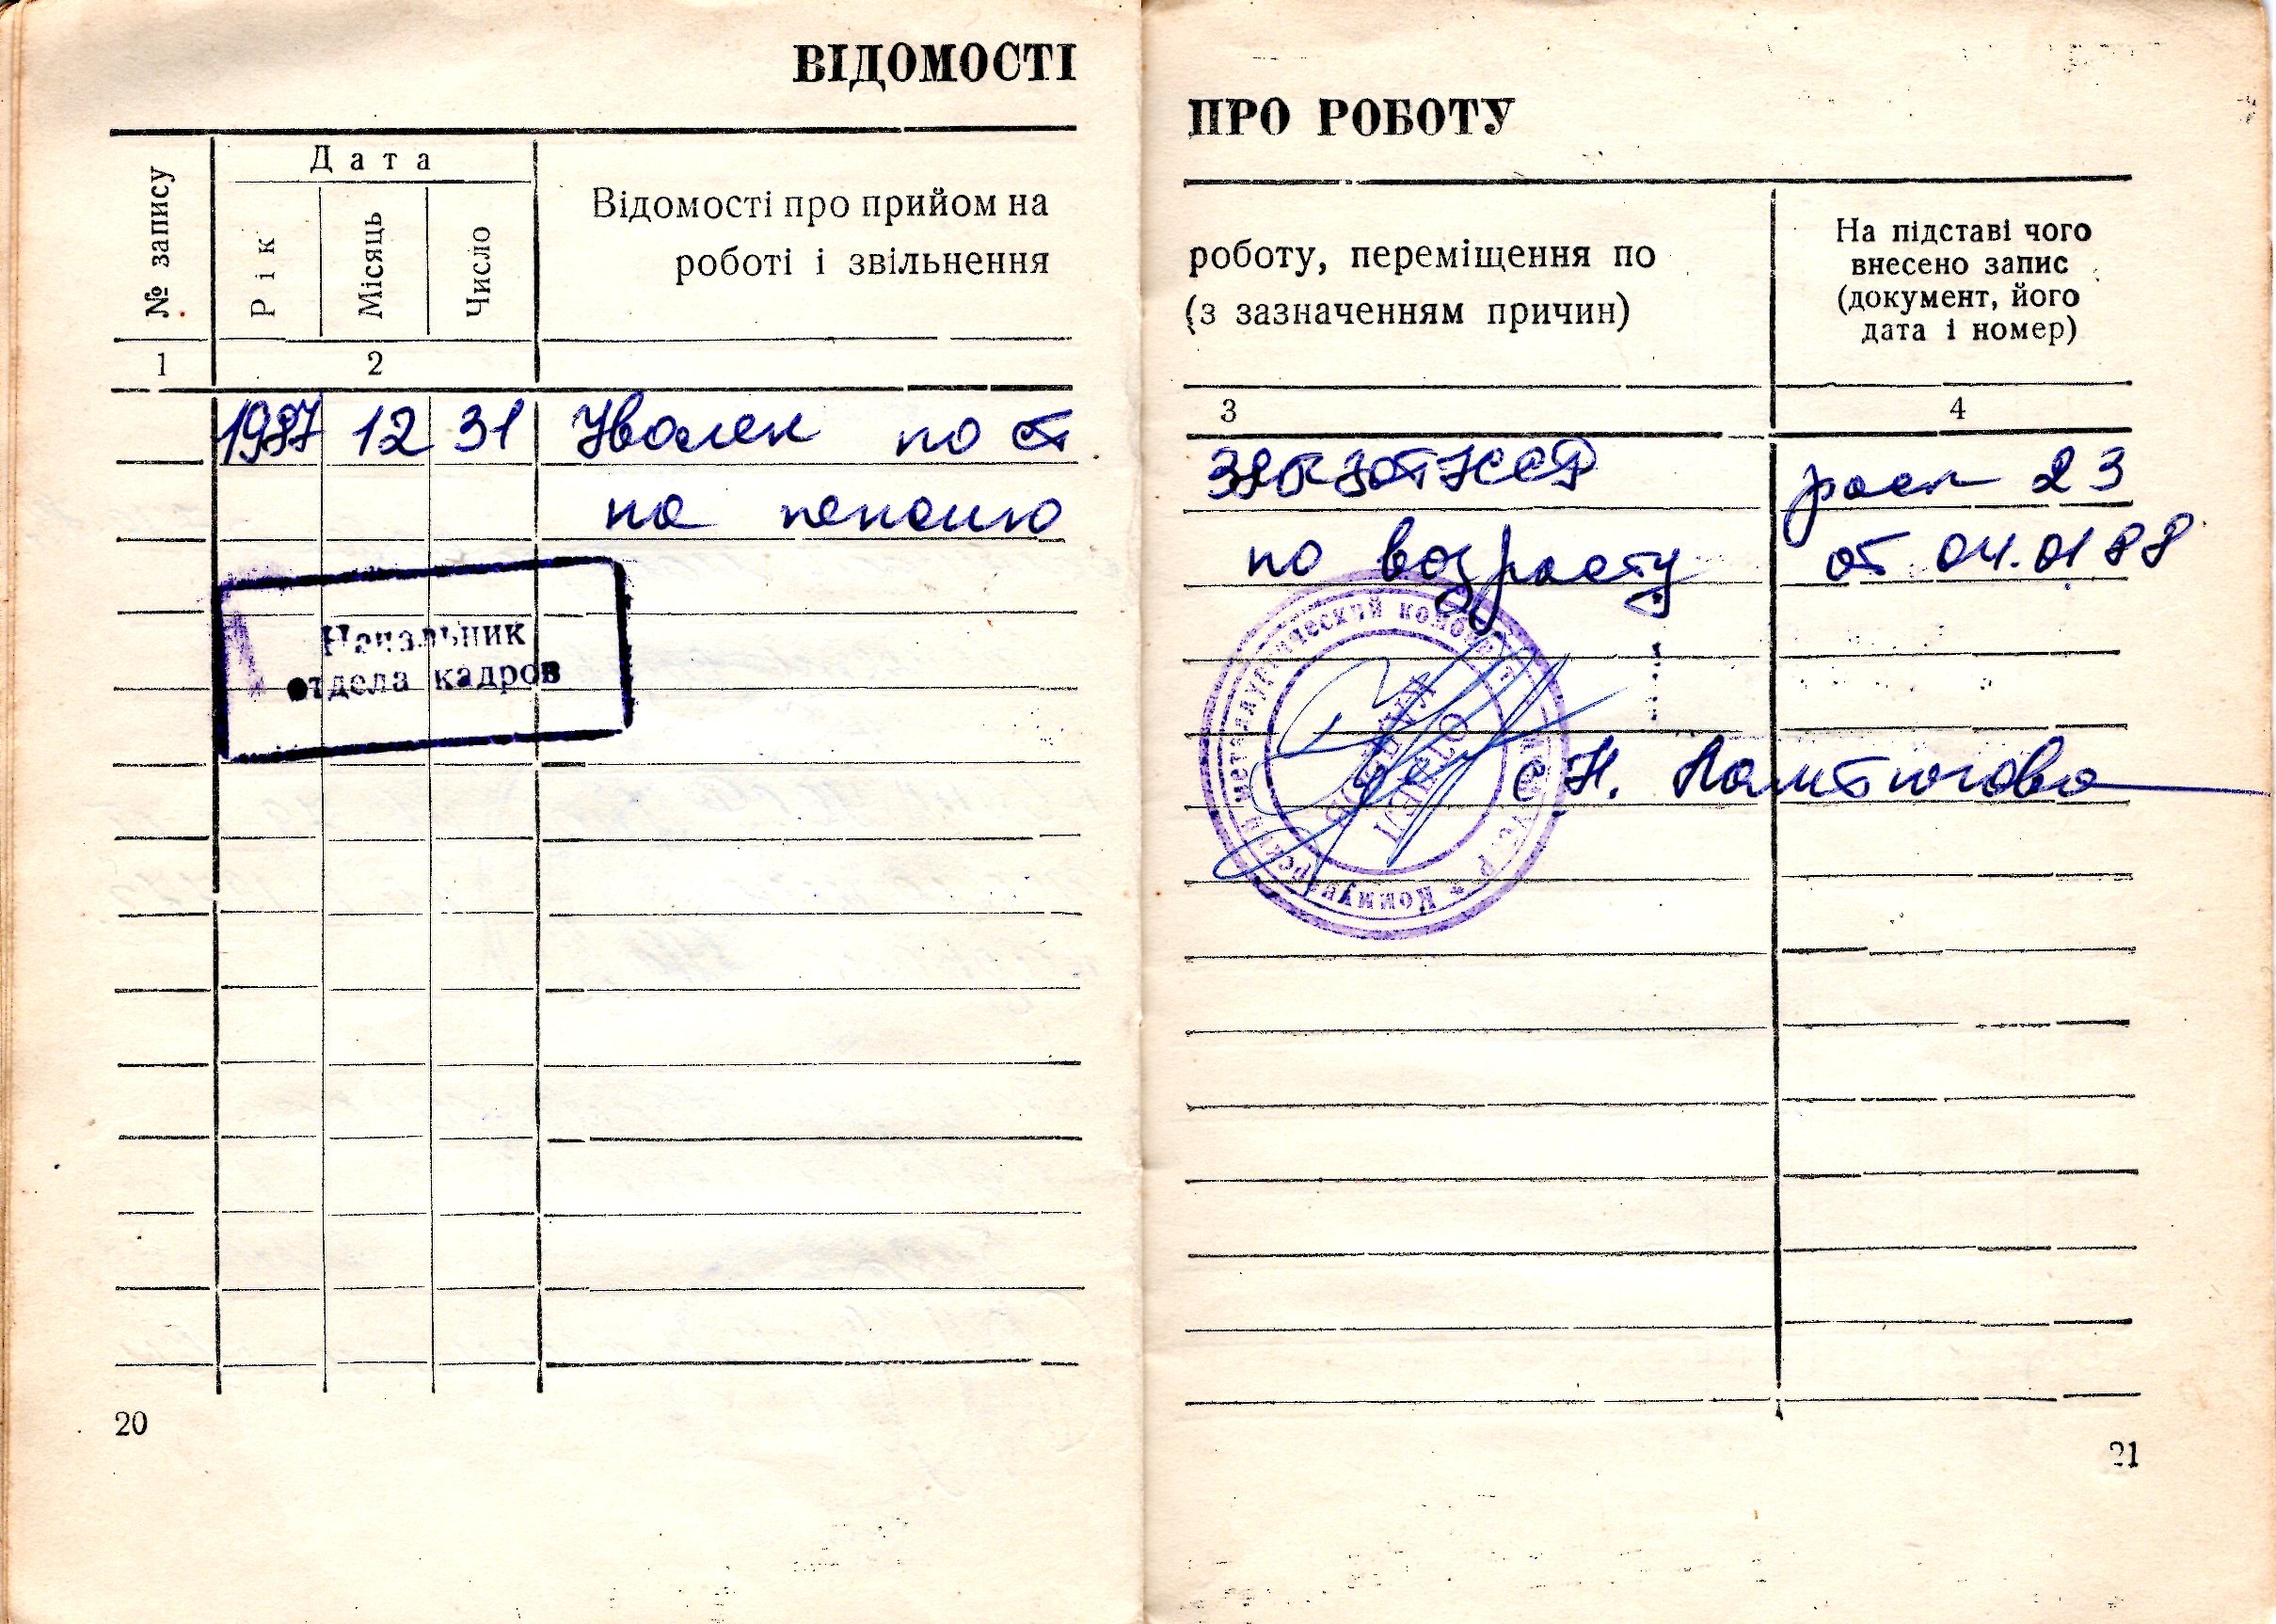 ВІДОМОСТІ
№ запису
Дата
Рік
Місяць
Число
Відомості про прийом на
роботі і звільнення
1
2
1987 12 31 Уволен по ст
на пенсию
Начальник
отдела кадров
20
ПРО РОБОТУ
роботу, переміщення по
(з зазначенням причин)
На підставі чого
внесено запис
(документ, його
дата і номер)
3
4
38 КЗОТ УССР
расп 23
по возрасту
от 04.01 88
Коммунарский металлургический комбинат
С.Н.
21